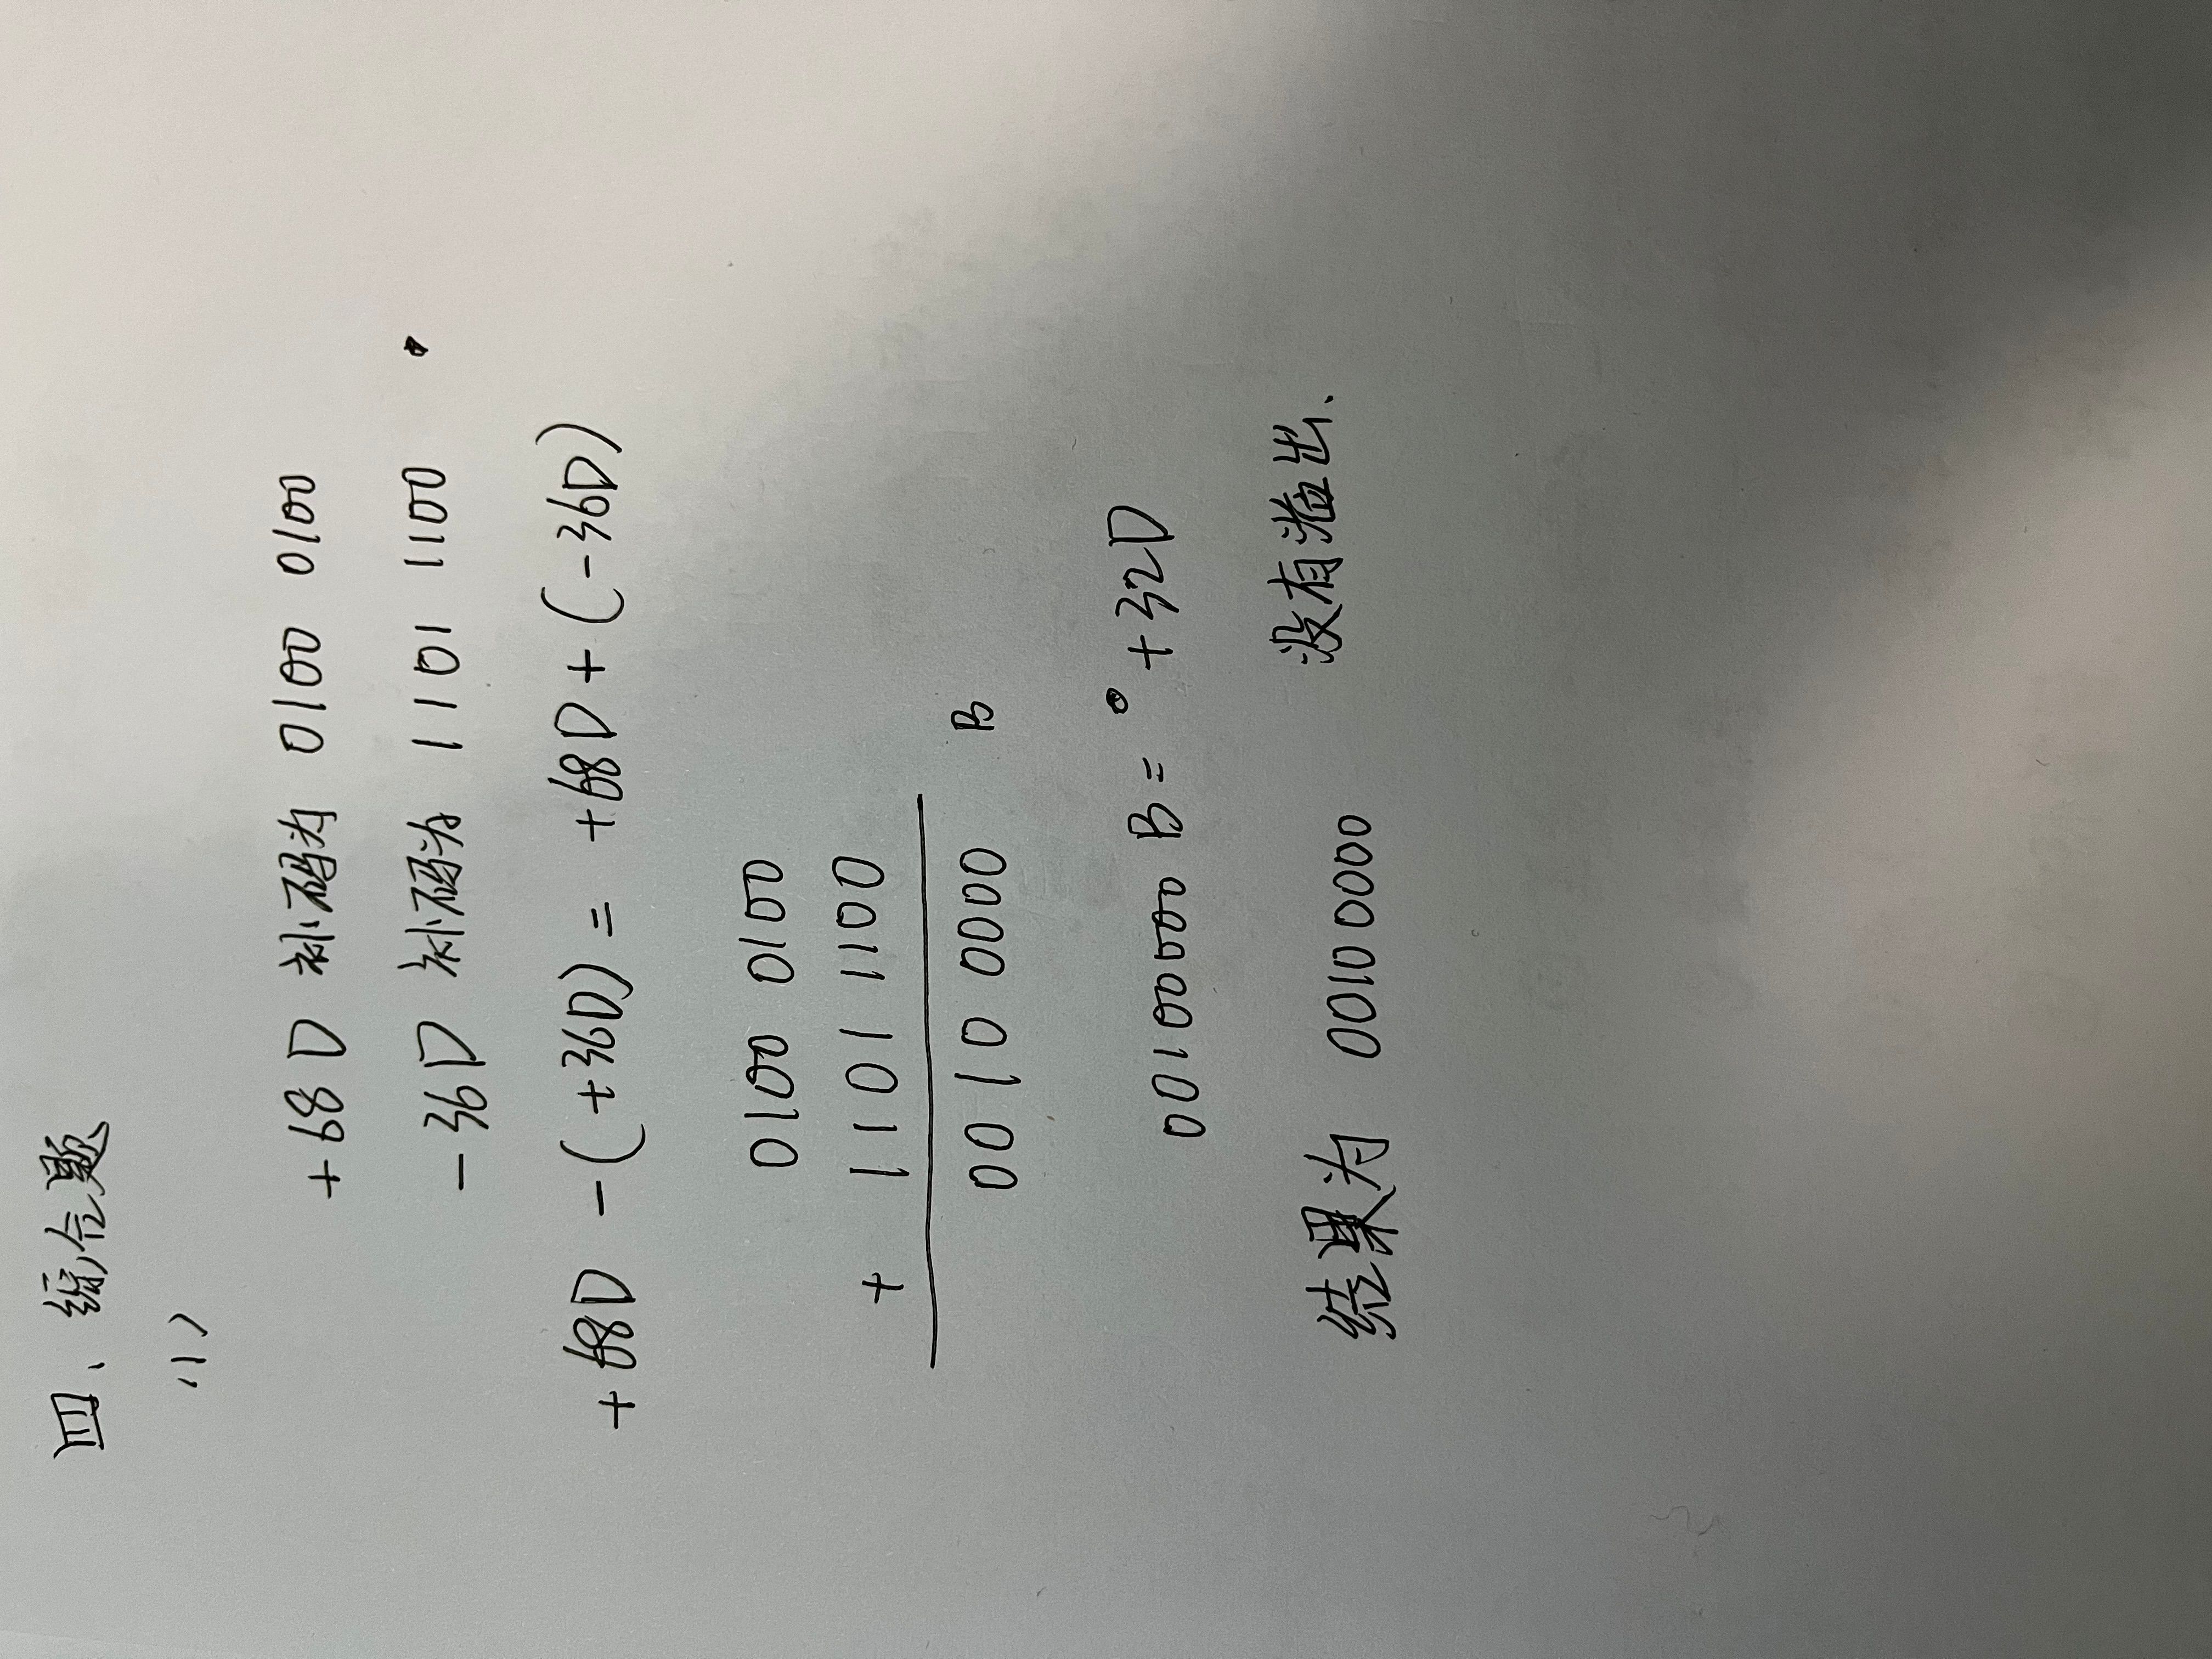 四、综合题
(1)
+68D 补码为 0100 0100
-36D 补码为 1101 1100
+68D -(+36D) = +68D+(-36D)
0100 0100
+ 1101 1100
0010 0000 B
00100000 B= +32D
没有溢出.
结果为 00100000